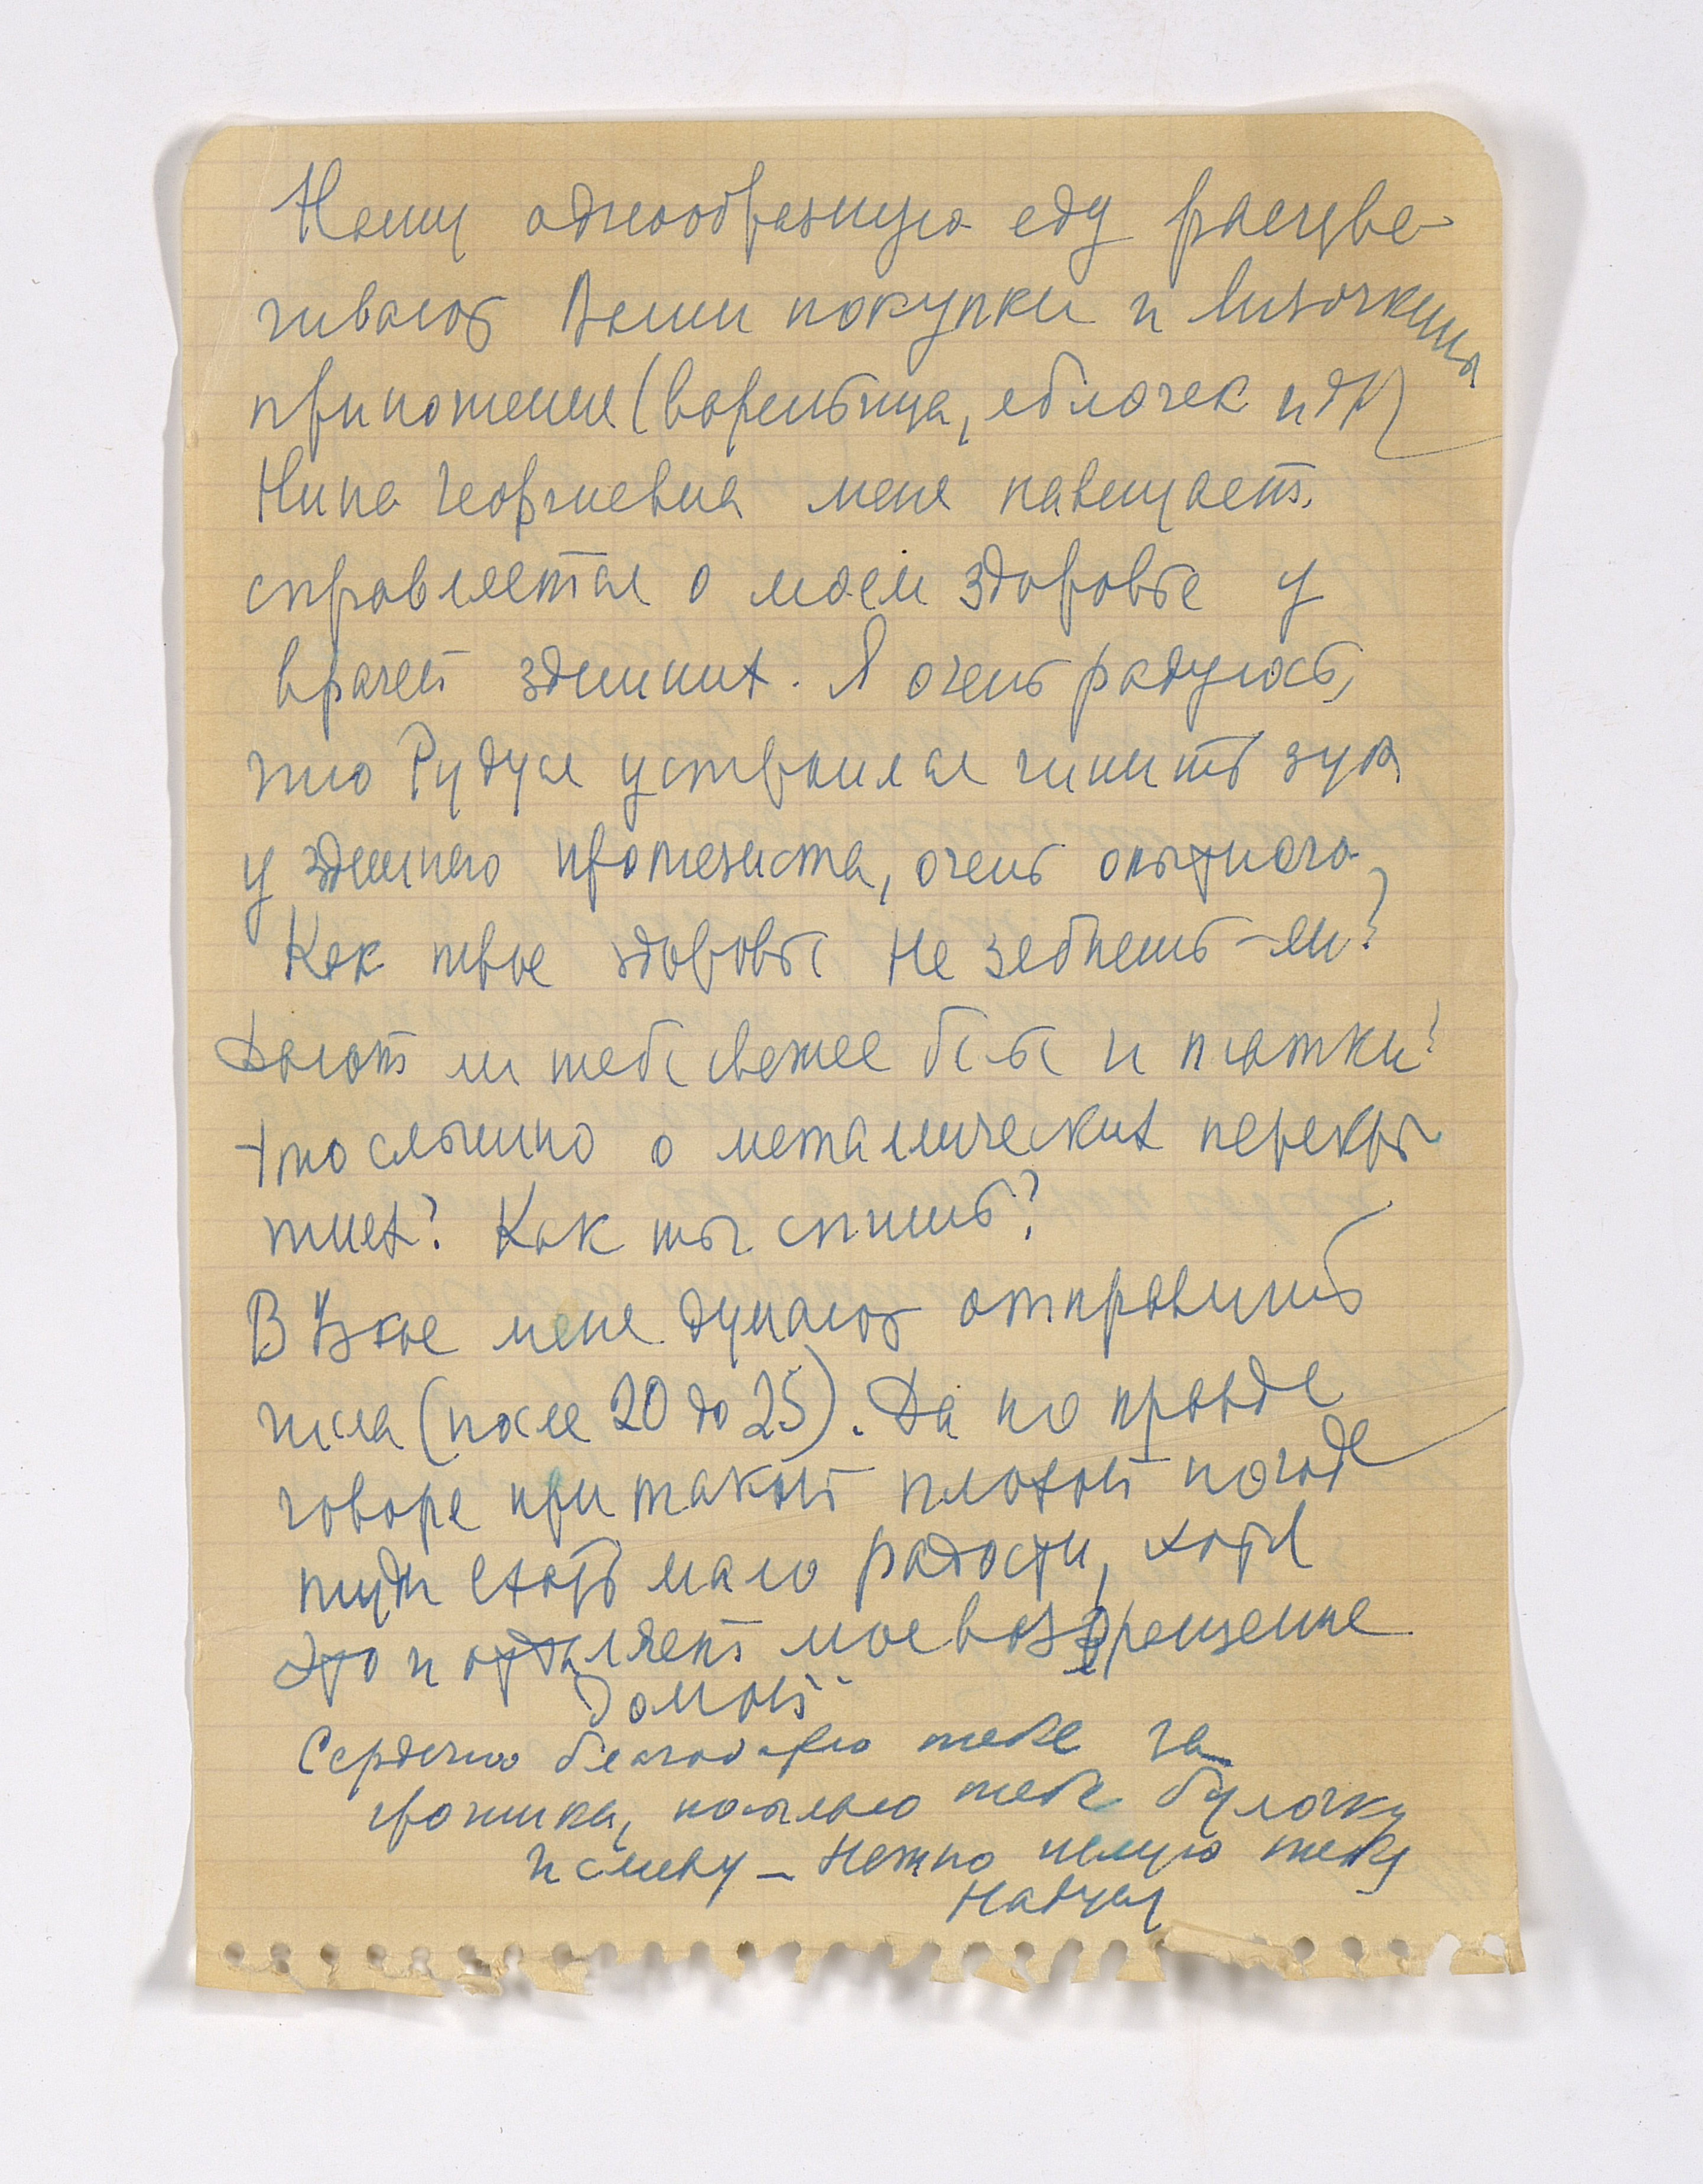 Нашу однообразную еду расцве-
чивают Ваши покупки и Лизочкины
приношения (вареньица, яблочек и др)
Нина Георгиевна меня навещает,
справляется о моем здоровье у
врачей здешних. Я очень радуюсь,
что Рудуся устроился чинить зуб
у здешнего протезиста, очень опытного
Как твое здоровье не зябнешь-ли?
Дают ли тебе свежее белье и платки?
Что слышно о металических перекры-
тиях? Как ты спишь?
В Узкое меня думают отправить
числа (после 20 до 25). Да по правде
говоря при такой плохой погоде
туда ехать мало радости, хотя
это и отдаляет мое возвращение
домой
Сердечно благодарю тебя за
посылаю тебе булочку
и сливу – Нежно целую тебя
Надуся